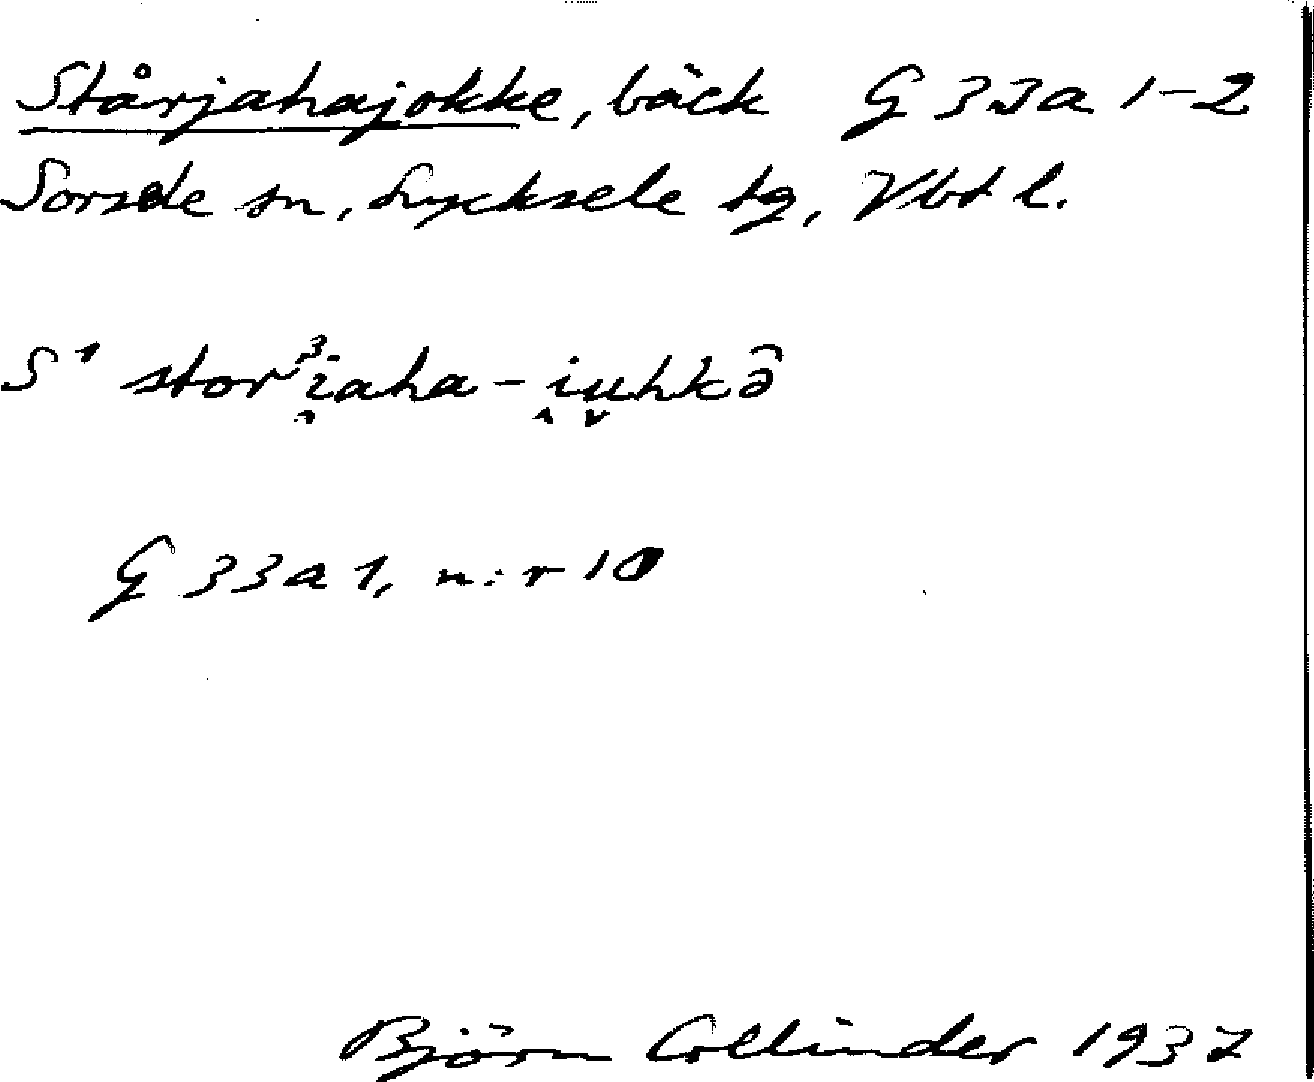 Stårjahajokke, bäck G 33a 1-2
Sorsele sn, Lycksele tg, Vbt l.
S¹ stor³i̯aha-i̭u̬hkə̑
G 33a 1, n:r 10
Björn Collinder 1937